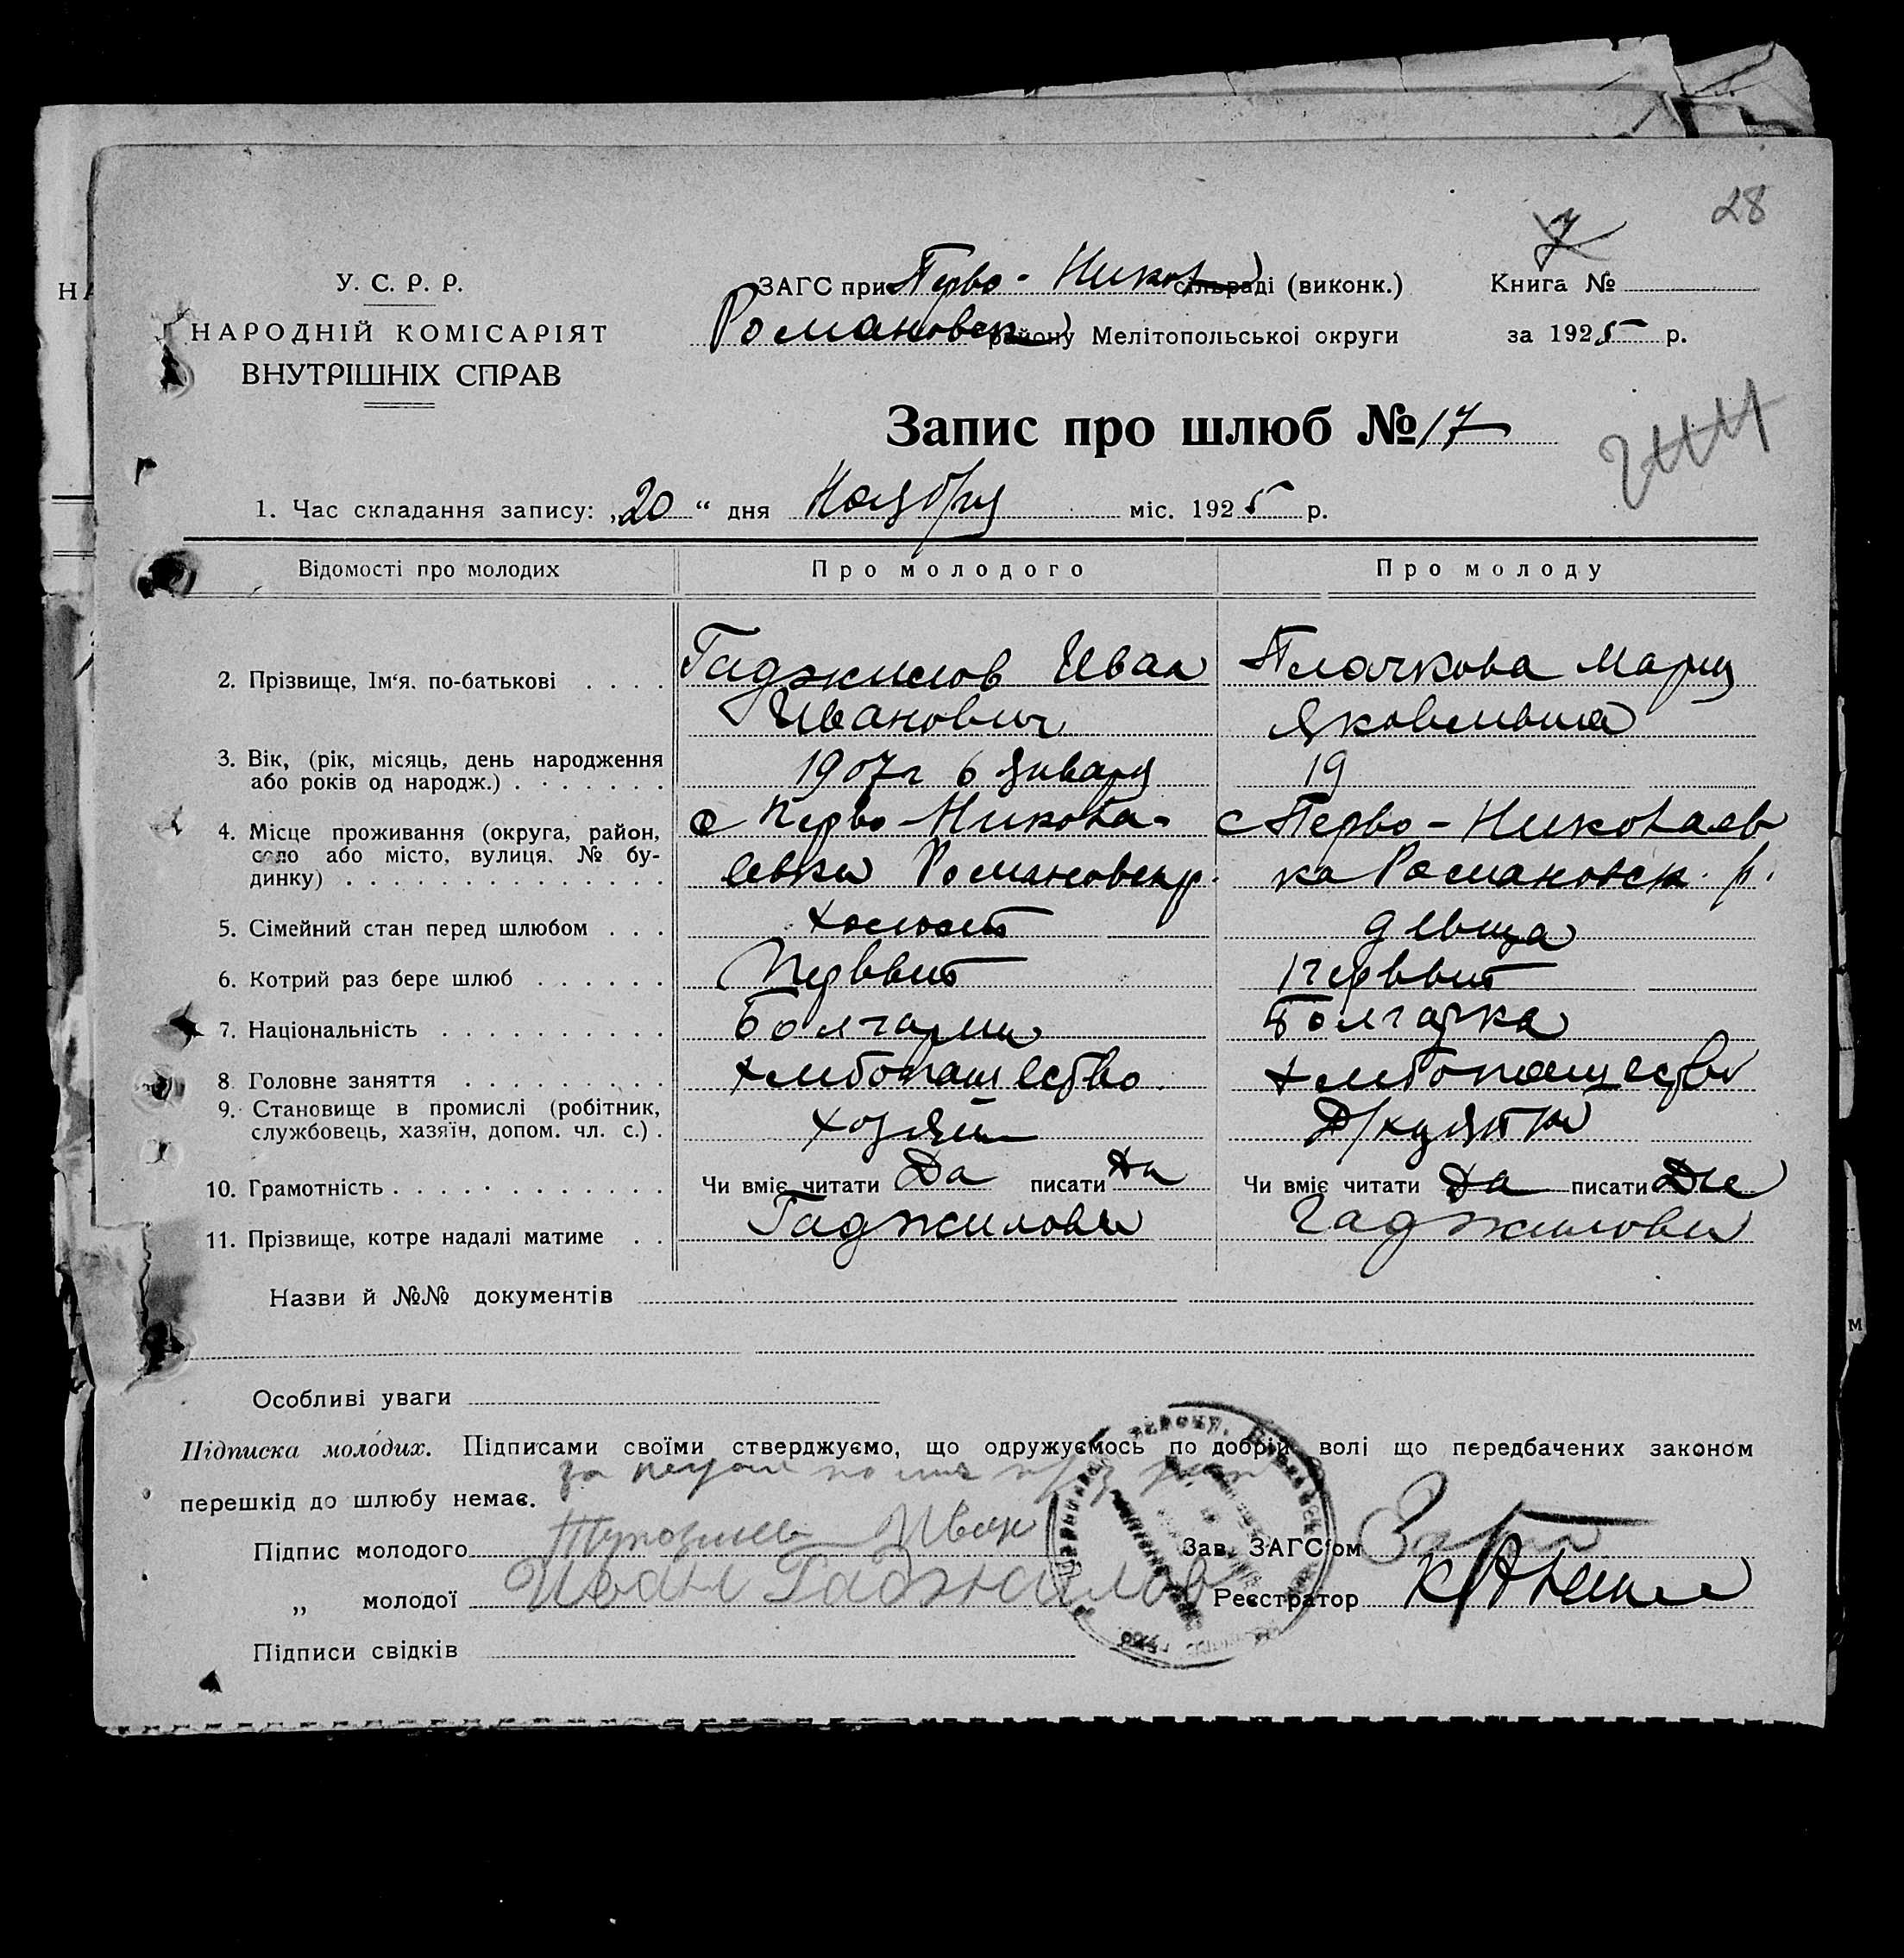 28
7
У. С. Р. Р.
НАРОДНІЙ КОМІСАРІЯТ
ВНУТРІШНІХ СПРАВ
ЗАГС при Перво-Никол сільраді (виконк.)
Романовск району Мелітопольської округи
Книга №
за 1925 р.
Запис про шлюб № 17
1. Час складання запису: „20“ дня Ноября міс. 1925 р.
Відомості про молодих Про молодого Про молоду
2. Прізвище, Ім'я. по-батькові . . . . Гаджилов Иван Плачкова Мария
Иванович Яковлевна
3. Вік, (рік, місяць, день народження
або років од народж.) . . . . . . . 1907 г 6 Января 19
4. Місце проживання (округа, район, с Перво-Никола- с Перво-Николаев
село або місто, вулиця. № бу- евка Романовск р. ка Романовск. р.
динку) . . . . . . . . . . . . . .
5. Сімейний стан перед шлюбом . . . холост девица
6. Котрий раз бере шлюб . . . . . . Первый Первый
7. Національність . . . . . . . . . . Болгарин Болгарка
8. Головне заняття . . . . . . . . . хлебопашество хлебопашество
9. Становище в промислі (робітник,
службовець, хазяїн, допом. чл. с.) . хозяин
10. Грамотність . . . . . . . . . . . . Чи вміє читати Да писати Да Чи вміє читати Да писати
11. Прізвище, котре надалі матиме . . Гаджилов Гаджилова
Назви й №№ документів
Особливі уваги
Підписка молодих. Підписами своїми стверджуємо, що одружуємось по добрій волі що передбачених законом
перешкід до шлюбу немає.
Підпис молодого Иван
Зав. ЗАГС'ом
„ молодої Иван Гаджилов
Реєстратор
Підписи свідків